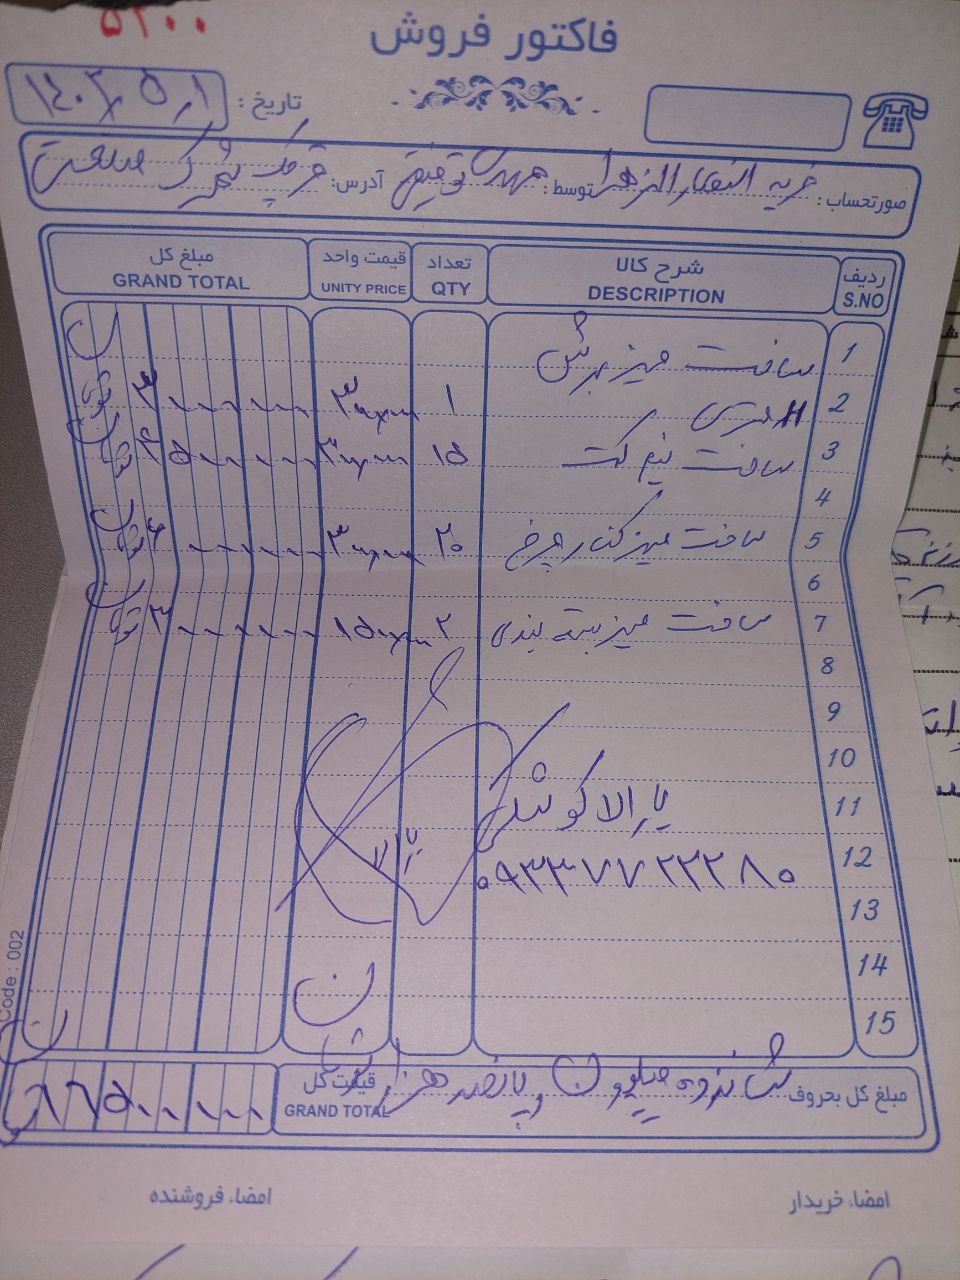 ۵۲۰۰
فاکتور فروش
تاریخ : ۱۴۰۲/۵/۱
صورتحساب : خریه انتصار الزهرا توسط : مهدی توفیقی آدرس : شهرک صنعتی
ردیف S.NO شرح کالا DESCRIPTION تعداد QTY قیمت واحد UNITY PRICE مبلغ کل GRAND TOTAL
1 ساخت میز برش
2 ۱۱ متری ۱ ۳۰۰۰۰۰۰ ۳۰۰۰۰۰۰ تومان
3 ساخت نیم کت ۱۵ ۳۰۰۰۰۰ ۴۵۰۰۰۰۰ تومان
4
5 ساخت میز کنار چرخ ۲۰ ۳۰۰۰۰۰ ۶۰۰۰۰۰۰ تومان
6
7 ساخت میز بسته بندی ۲ ۱۵۰۰۰۰۰ ۳۰۰۰۰۰۰ تومان
8
9
10
11 یارالا
12 ۰۹۳۳۷۷۲۲۲۸۰
13
14
15
Code : 002
مبلغ کل بحروف شانزده میلیون و پانصد هزار تومان قیمت کل GRAND TOTAL ۱۶۵۰۰۰۰۰
امضاء خریدار امضاء فروشنده